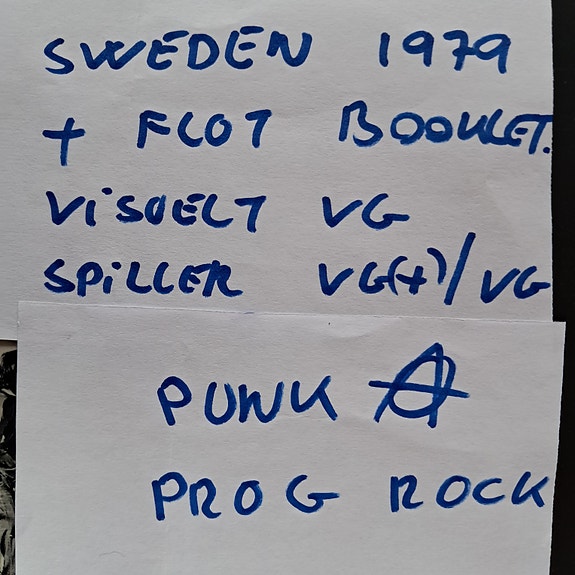 SWEDEN 1979
+ FLOT BOOKLET.
ViSUELT VG
SPiLLER VG(+)/VG
PUNK Ⓐ
PROG ROCK